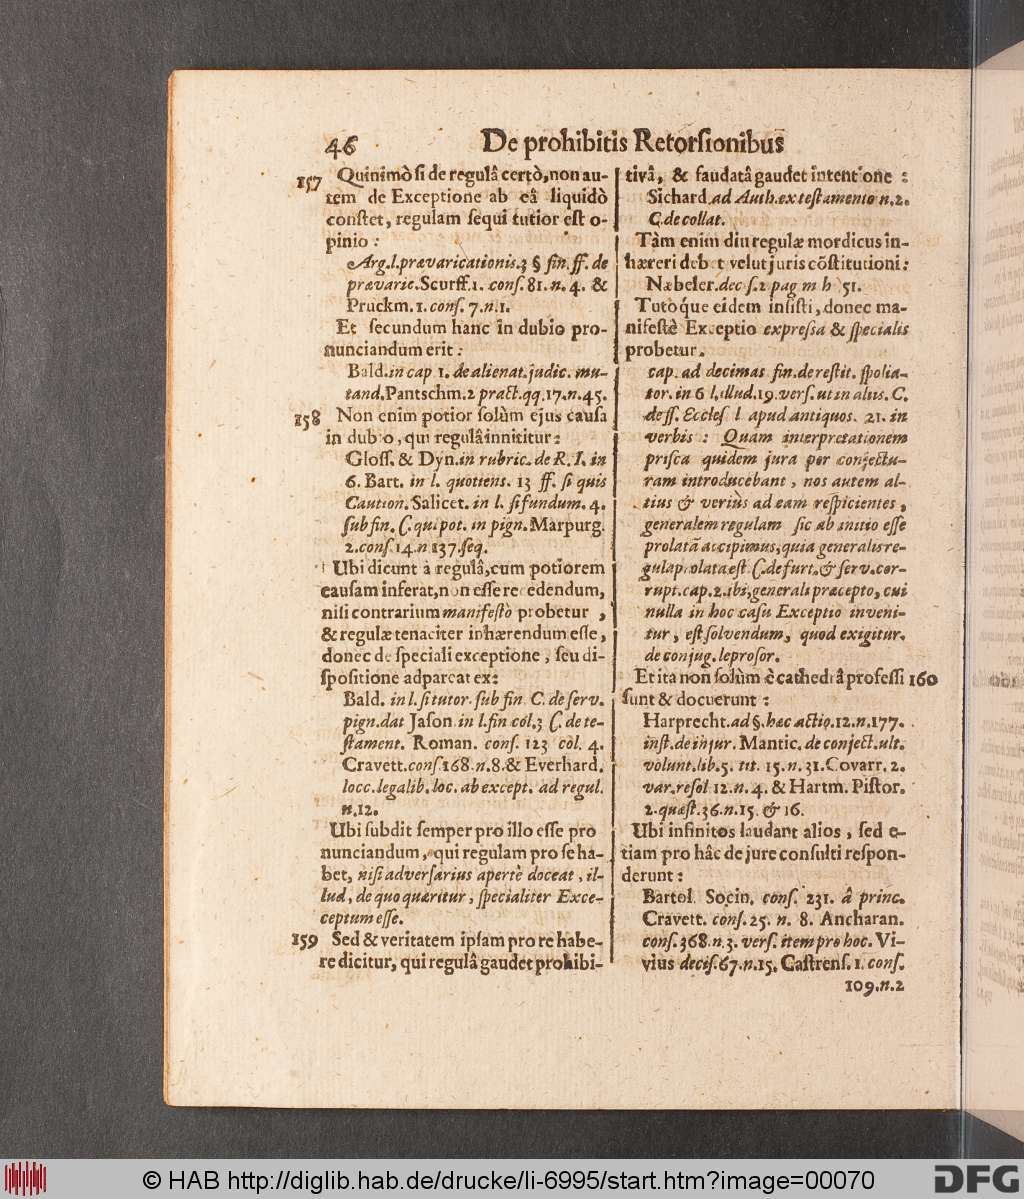 46 De prohibitis Retorsionibus
157 Quinimò si de regulâ certò, non au-
tem de Exceptione ab eâ liquidò
constet, regulam sequi tutior est o-
pinio:
Arg. l. prævaricationis. 3 § fin. ff. de
prævaric. Scurff. 1. cons. 81. n. 4. &
Pruckm. 1. cons. 7. n. 1.
Et secundum hanc in dubio pro-
nunciandum erit:
Bald. in cap 1. de alienat. judic. mu-
tand. Pantschm. 2 pract. qq. 17. n. 45.
158 Non enim potior solùm ejus causa
in dubio, qui regulâ innititur:
Gloss. & Dyn. in rubric. de R. I. in
6. Bart. in l. quotiens. 13 ff. si quis
Caution. Salicet. in l. si fundum. 4.
sub fin. C. qui pot. in pign. Marpurg.
2. cons. 14. n 137. seq.
Ubi dicunt à regulâ, cum potiorem
causam inferat, non esse recedendum,
nisi contrarium manifestò probetur,
& regulæ tenaciter inhærendum esse,
donec de speciali exceptione, seu di-
spositione adpareat ex:
Bald. in l. si tutor. sub fin C. de serv.
pign. dat Jason. in l. fin col. 3 C. de te-
stament. Roman. cons. 123 col. 4.
Cravett. cons 168. n. 8. & Everhard.
locc. legalib. loc. ab except. ad regul.
n. 12.
Ubi subdit semper pro illo esse pro
nunciandum, qui regulam pro se ha-
bet, nisi adversarius apertè doceat, il-
lud, de quo quæritur, specialiter Exce-
ceptum esse.
159 Sed & veritatem ipsam pro re habe-
re dicitur, qui regulâ gaudet prohibi-
tivâ, & faudatâ gaudet intentione:
Sichard. ad Auth. ex testamento n. 2.
C. de collat.
Tàm enim diu regulæ mordicus in-
hæreri debet velut juris cõstitutioni:
Næbeler. decis. 2 pag m h 51.
Tutòque eidem insisti, donec ma-
nifestè Exceptio expressa & specialis
probetur.
cap. ad decimas fin. de restit. spolia-
tor. in 6 l. illud. 19. vers. ut in aliis. C.
de ss. Eccles l apud antiquos. 21. in
verbis: Quam interpretationem
prisca quidem jura per conjectu-
ram introducebant, nos autem al-
tius & veriùs ad eam respicientes,
generalem regulam sic ab initio esse
prolatã accipimus, quia generalis re-
gula prolata est C. de furt. & serv. cor-
rupt. cap. 2. ibi, generali præcepto, cui
nulla in hoc casu Exceptio inveni-
tur, est solvendum, quod exigitur.
de conjug. leprosor.
Et ita non solùm è cathedrâ professi 160
sunt & docuerunt:
Harprecht. ad §. hæc actio. 12. n. 177.
inst. de injur. Mantic. de conject. ult.
volunt. lib. 5. tit. 15. n. 31. Covarr. 2.
var. resol 12. n. 4. & Hartm. Pistor.
2. quæst. 36. n. 15. & 16.
Ubi infinitos laudant alios, sed e-
tiam pro hâc de jure consulti respon-
derunt:
Bartol. Socin. cons. 231. â princ.
Cravett. cons. 25. n. 8. Ancharan.
cons. 368. n. 3. vers. item pro hoc. Vi-
vius decis. 67. n. 15. Castrens. 1. cons.
109. n. 2
© HAB http://diglib.hab.de/drucke/li-6995/start.htm?image=00070
DFG